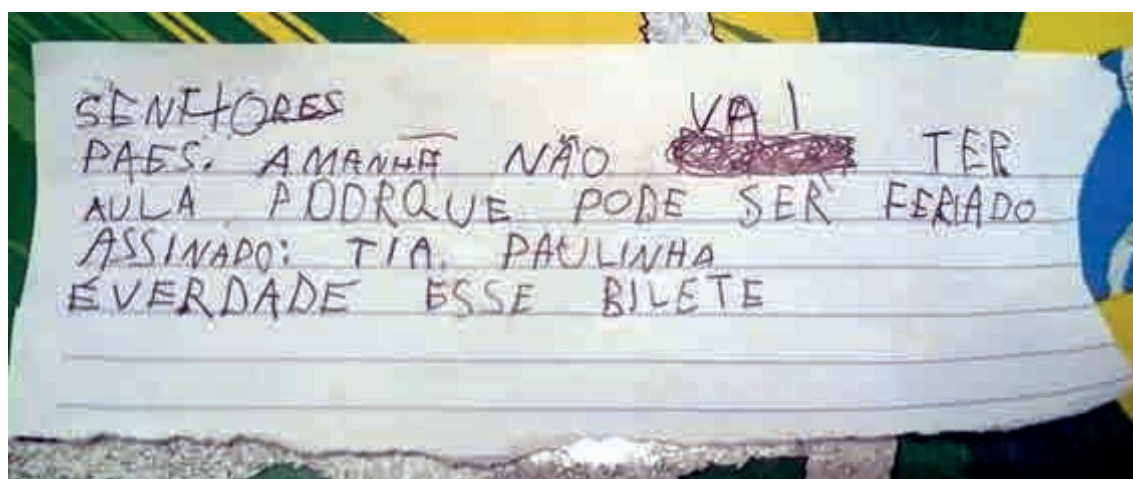 SENHORES
PAES. AMANHÃ NÃO VAI TER
AULA PODRQUE PODE SER FERIADO
ASSINADO: TIA. PAULINHA
EVERDADE ESSE BILETE